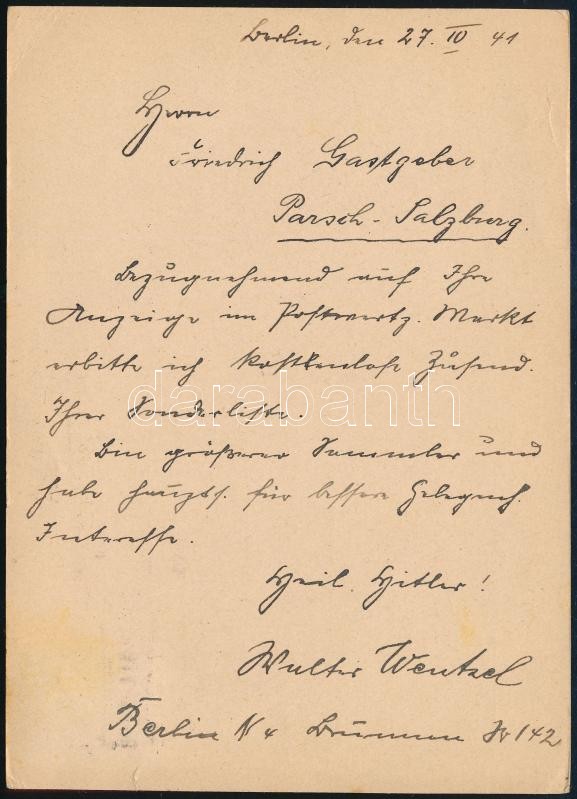 Berlin, den 27. IV 41
Herrn
Friedrich Gastgeber
Parsch-Salzburg.
Bezugnehmend auf Ihre
Anzeige im Postwertz. Markt
erbitte ich kostenlose Zusend.
Ihrer Sonderliste.
Bin größerer Sammler und
habe haupts. für bessere Gelegenh.
Interesse.
Heil Hitler!
Walter Wentzel
Berlin N 4 Brunnen 142
darabanth